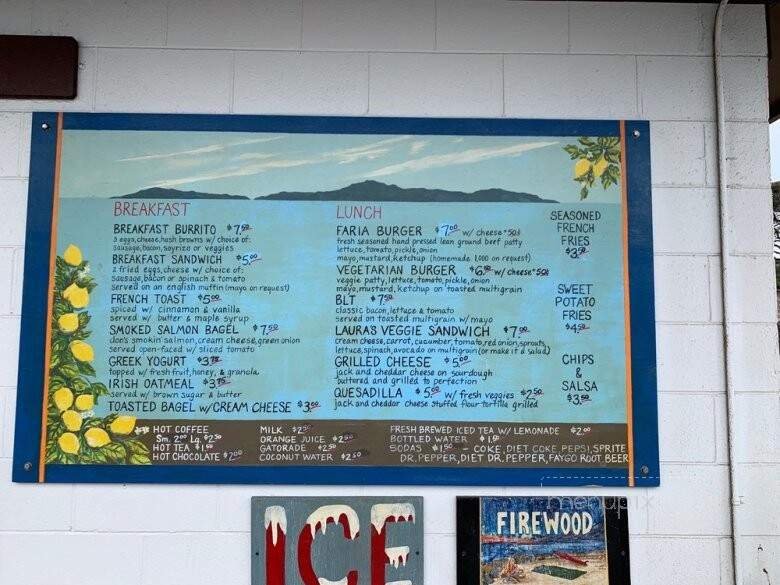 BREAKFAST
BREAKFAST BURRITO $7.50
3 eggs, cheese, hash browns w/ choice of:
sausage, bacon, soyrizo or veggies
BREAKFAST SANDWICH $5.00
2 fried eggs, cheese w/ choice of:
sausage, bacon or spinach & tomato
served on an english muffin (mayo on request)
FRENCH TOAST $5.00
spiced w/ cinnamon & vanilla
served w/ butter & maple syrup
SMOKED SALMON BAGEL $7.50
don's smokin' salmon, cream cheese, green onion
served open-faced w/ sliced tomato
GREEK YOGURT $3.75
topped w/ fresh fruit, honey, & granola
IRISH OATMEAL $3.75
served w/ brown sugar & butter
TOASTED BAGEL w/ CREAM CHEESE $3.00
LUNCH
FARIA BURGER $7.00 w/ cheese + 50¢
fresh seasoned hand pressed lean ground beef patty
lettuce, tomato, pickle, onion
mayo, mustard, ketchup (homemade 1,000 on request)
VEGETARIAN BURGER $6.50 w/ cheese + 50¢
veggie patty, lettuce, tomato, pickle, onion
mayo, mustard, ketchup on toasted multigrain
BLT $7.50
classic bacon, lettuce & tomato
served on toasted multigrain w/ mayo
LAURA'S VEGGIE SANDWICH $7.00
cream cheese, carrot, cucumber, tomato, red onion, sprouts,
lettuce, spinach, avocado on multigrain (or make it a salad)
GRILLED CHEESE $5.00
jack and cheddar cheese on sourdough
buttered and grilled to perfection
QUESADILLA $5.00 w/ fresh veggies $2.50
jack and cheddar cheese stuffed flour tortilla grilled
SEASONED
FRENCH
FRIES
$3.50
SWEET
POTATO
FRIES
$4.50
CHIPS
&
SALSA
$3.50
HOT COFFEE
Sm. 2.00 Lg. $2.50
HOT TEA $1.50
HOT CHOCOLATE $2.00
MILK $2.00
ORANGE JUICE $2.00
GATORADE $2.50
COCONUT WATER $2.50
FRESH BREWED ICED TEA W/ LEMONADE $2.00
BOTTLED WATER $1.50
SODAS $1.50 - COKE, DIET COKE, PEPSI, SPRITE
DR. PEPPER, DIET DR. PEPPER, FAYGO ROOT BEER
menupix
ICE
FIREWOOD